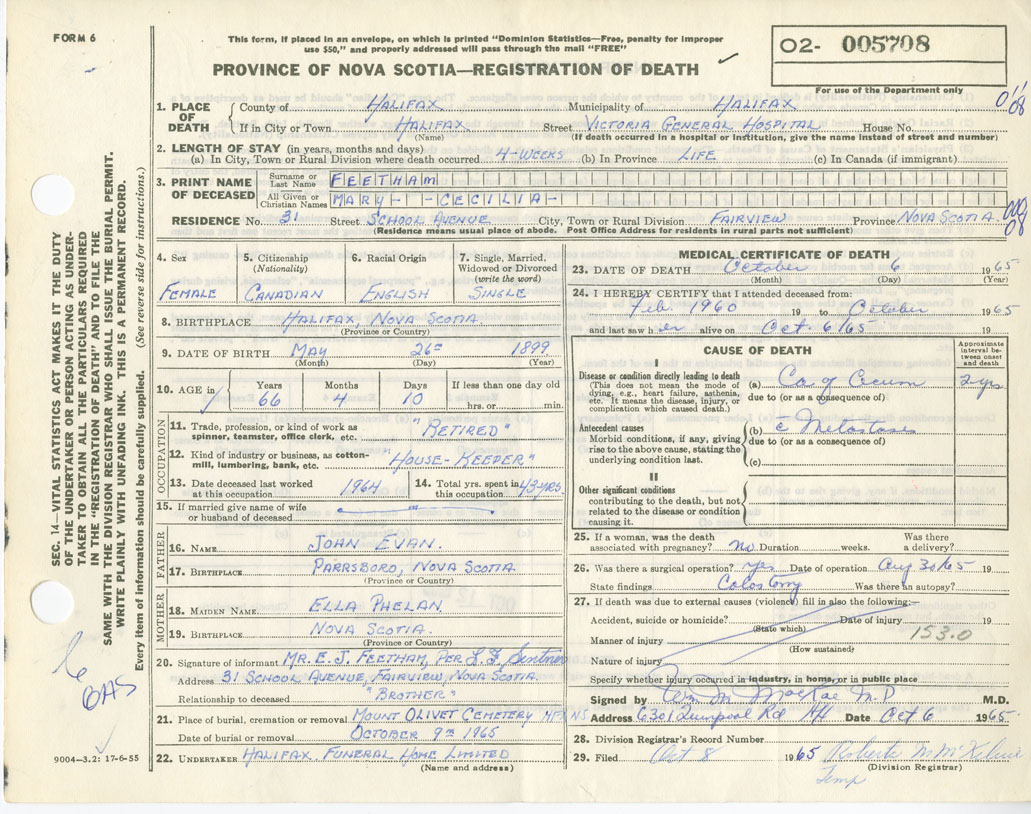 FORM 6
This form, if placed in an envelope, on which is printed "Dominion Statistics—Free, penalty for improper
use $50," and properly addressed will pass through the mail "FREE"
PROVINCE OF NOVA SCOTIA—REGISTRATION OF DEATH
02- 005708
For use of the Department only
1. PLACE OF DEATH { County of HALIFAX Municipality of HALIFAX
If in City or Town HALIFAX Street VICTORIA GENERAL HOSPITAL House No.
(Name) (If death occurred in a hospital or institution, give the name instead of street and number)
2. LENGTH OF STAY (in years, months and days)
(a) In City, Town or Rural Division where death occurred 4-WEEKS (b) In Province LIFE (c) In Canada (if immigrant)
3. PRINT NAME OF DECEASED
Surname or Last Name FEETHAM
All Given or Christian Names MARY - - CECILIA -
RESIDENCE No. 31 Street SCHOOL AVENUE City, Town or Rural Division FAIRVIEW Province NOVA SCOTIA.
(Residence means usual place of abode. Post Office Address for residents in rural parts not sufficient)
4. Sex
FEMALE
5. Citizenship
(Nationality)
CANADIAN
6. Racial Origin
ENGLISH
7. Single, Married,
Widowed or Divorced
(write the word)
SINGLE
8. BIRTHPLACE HALIFAX, NOVA SCOTIA.
(Province or Country)
9. DATE OF BIRTH MAY 26TH 1899
(Month) (Day) (Year)
10. AGE in
Years Months Days If less than one day old
66 4 10 hrs. or min.
OCCUPATION
11. Trade, profession, or kind of work as
spinner, teamster, office clerk, etc. "RETIRED"
12. Kind of industry or business, as cotton-
mill, lumbering, bank, etc. "HOUSE-KEEPER"
13. Date deceased last worked
at this occupation 1964
14. Total yrs. spent in
this occupation 43 YRS.
15. If married give name of wife
or husband of deceased
FATHER
16. NAME JOHN EVAN.
17. BIRTHPLACE PARRSBORO, NOVA SCOTIA
(Province or Country)
MOTHER
18. MAIDEN NAME ELLA PHELAN.
19. BIRTHPLACE NOVA SCOTIA.
(Province or Country)
20. Signature of informant MR. E. J. FEETHAM, PER L. F.
Address 31 SCHOOL AVENUE, FAIRVIEW, NOVA SCOTIA.
Relationship to deceased "BROTHER"
21. Place of burial, cremation or removal MOUNT OLIVET CEMETERY HFX NS
Date of burial or removal OCTOBER 9TH 1965
22. UNDERTAKER HALIFAX FUNERAL HOME LIMITED
(Name and address)
MEDICAL CERTIFICATE OF DEATH
23. DATE OF DEATH October 6 1965
(Month) (Day) (Year)
24. I HEREBY CERTIFY that I attended deceased from:
Feb. 1960 19 to October 1965
and last saw h er alive on Oct 6/65 19
CAUSE OF DEATH
Approximate
interval be-
tween onset
and death
I
Disease or condition directly leading to death
(This does not mean the mode of
dying, e.g., heart failure, asthenia,
etc. It means the disease, injury, or
complication which caused death.)
(a) Ca of Cecum 2 yrs
due to (or as a consequence of)
Antecedent causes
Morbid conditions, if any, giving
rise to the above cause, stating the
underlying condition last.
(b) c Metastases
due to (or as a consequence of)
(c)
II
Other significant conditions
contributing to the death, but not
related to the disease or condition
causing it.
25. If a woman, was the death
associated with pregnancy? no. Duration weeks. Was there
a delivery?
26. Was there a surgical operation? yes Date of operation Aug 30/65 19
State findings Colostomy Was there an autopsy?
27. If death was due to external causes (violence) fill in also the following:—
Accident, suicide or homicide? Date of injury 19
(State which)
Manner of injury 153.0
(How sustained)
Nature of injury
Specify whether injury occurred in industry, in home, or in public place
Signed by Wm M MacRae M.D M.D.
Address 6301 Liverpool Rd Hfx Date Oct 6 1965
28. Division Registrar's Record Number
29. Filed Oct 8 1965 Roberta M
(Division Registrar)
Temp
SEC. 14—VITAL STATISTICS ACT MAKES IT THE DUTY
OF THE UNDERTAKER OR PERSON ACTING AS UNDER-
TAKER TO OBTAIN ALL THE PARTICULARS REQUIRED
IN THE "REGISTRATION OF DEATH" AND TO FILE THE
SAME WITH THE DIVISION REGISTRAR WHO SHALL ISSUE THE BURIAL PERMIT.
WRITE PLAINLY WITH UNFADING INK. THIS IS A PERMANENT RECORD.
Every item of information should be carefully supplied. (See reverse side for instructions.)
9004—3.2: 17-6-55